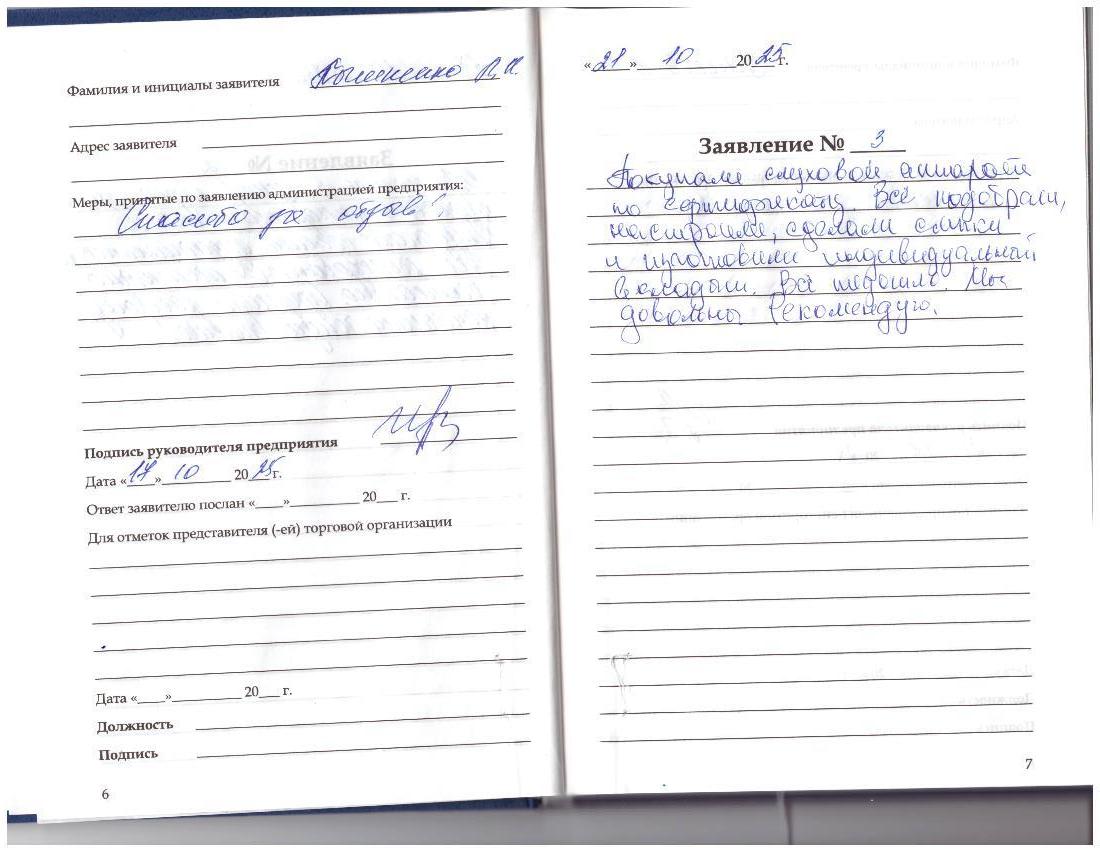 Фамилия и инициалы заявителя
Адрес заявителя
Меры, принятые по заявлению администрацией предприятия:
Спасибо за отзыв!
Подпись руководителя предприятия
Дата «17» 10 2025 г.
Ответ заявителю послан «____»__________ 20___ г.
Для отметок представителя (-ей) торговой организации
Дата «____»__________ 20___ г.
Должность
Подпись
6
«21» 10 2025 г.
Заявление № 3
Покупали слуховой аппарат
по сертификату. Всё подобрали,
настроили, сделали слепки
и изготовили индивидуальный
вкладыш. Всё подошло. Мы
довольны Рекомендую.
7